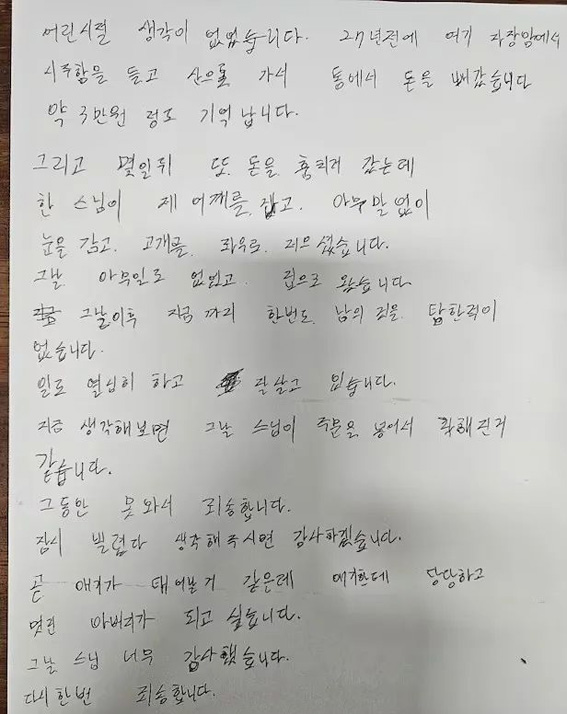 어린시절 생각이 없었습니다. 27년전에 여기 자장암에서
시주함을 들고 산으로 가서 통에서 돈을 빼갔습니다
약 3만원 정도 기억 납니다.
그리고 몇일뒤 또 돈을 훔치러 갔는데
한 스님이 제 어깨를 잡고. 아무말없이
눈을 감고. 고개를 좌우로 저으셨습니다.
그날 아무일도 없었고. 집으로 왔습니다
그날이후 지금 까지 한번도 남의 것을 탐한적이
없습니다.
일도 열심히 하고 잘살고 있습니다.
지금 생각해보면 그날 스님이 주문을 넣어서 착해진거
같습니다.
그동안 못와서 죄송합니다.
잠시 빌렸다 생각해주시면 감사하겠습니다.
곧 애기가 태어날거 같은데 애기한테 당당하고
멋진 아버지가 되고 싶습니다.
그날 스님 너무 감사했습니다.
다시한번 죄송합니다.